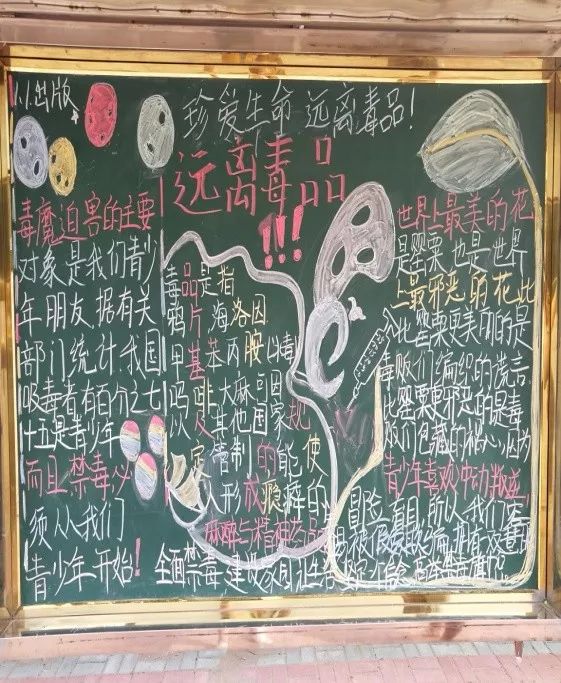 1.1.出版
珍爱生命 远离毒品!
远离毒品
!!!
毒魔迫害的主要
对象是我们青少
年朋友.据有关
部门统计.我国
吸毒者有百分之七
十五是青少年
而且禁毒必
须从我们
青少年开始!
毒品是指
鸦片 海洛因
甲基苯丙胺
吗啡大麻可因
以及其他国家规
定管制的能使
人形成瘾癖的
麻醉与精神
世界上最美的花
是罂粟.也是世界
上最邪恶的花.比
比罂粟更美丽的是
毒贩们编织的谎言
比罂粟更邪恶的是毒
贩们包藏的祸心.因为
青少年喜欢冲动叛逆
冒险 所以我们
全面禁毒.建设家园